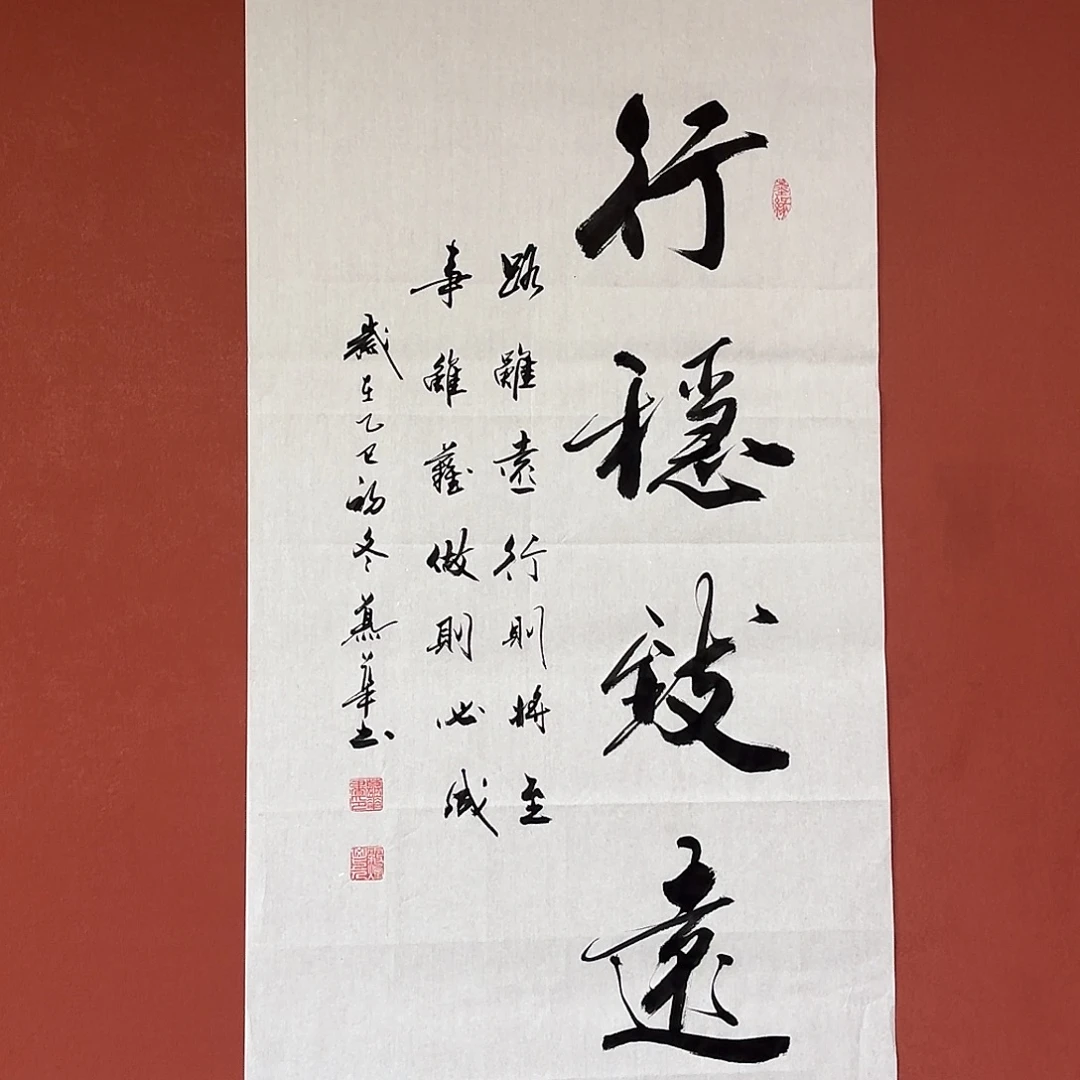 行穩致遠
路雖遠行則將至
事雖難做則必成
歲在乙巳初冬慕華书